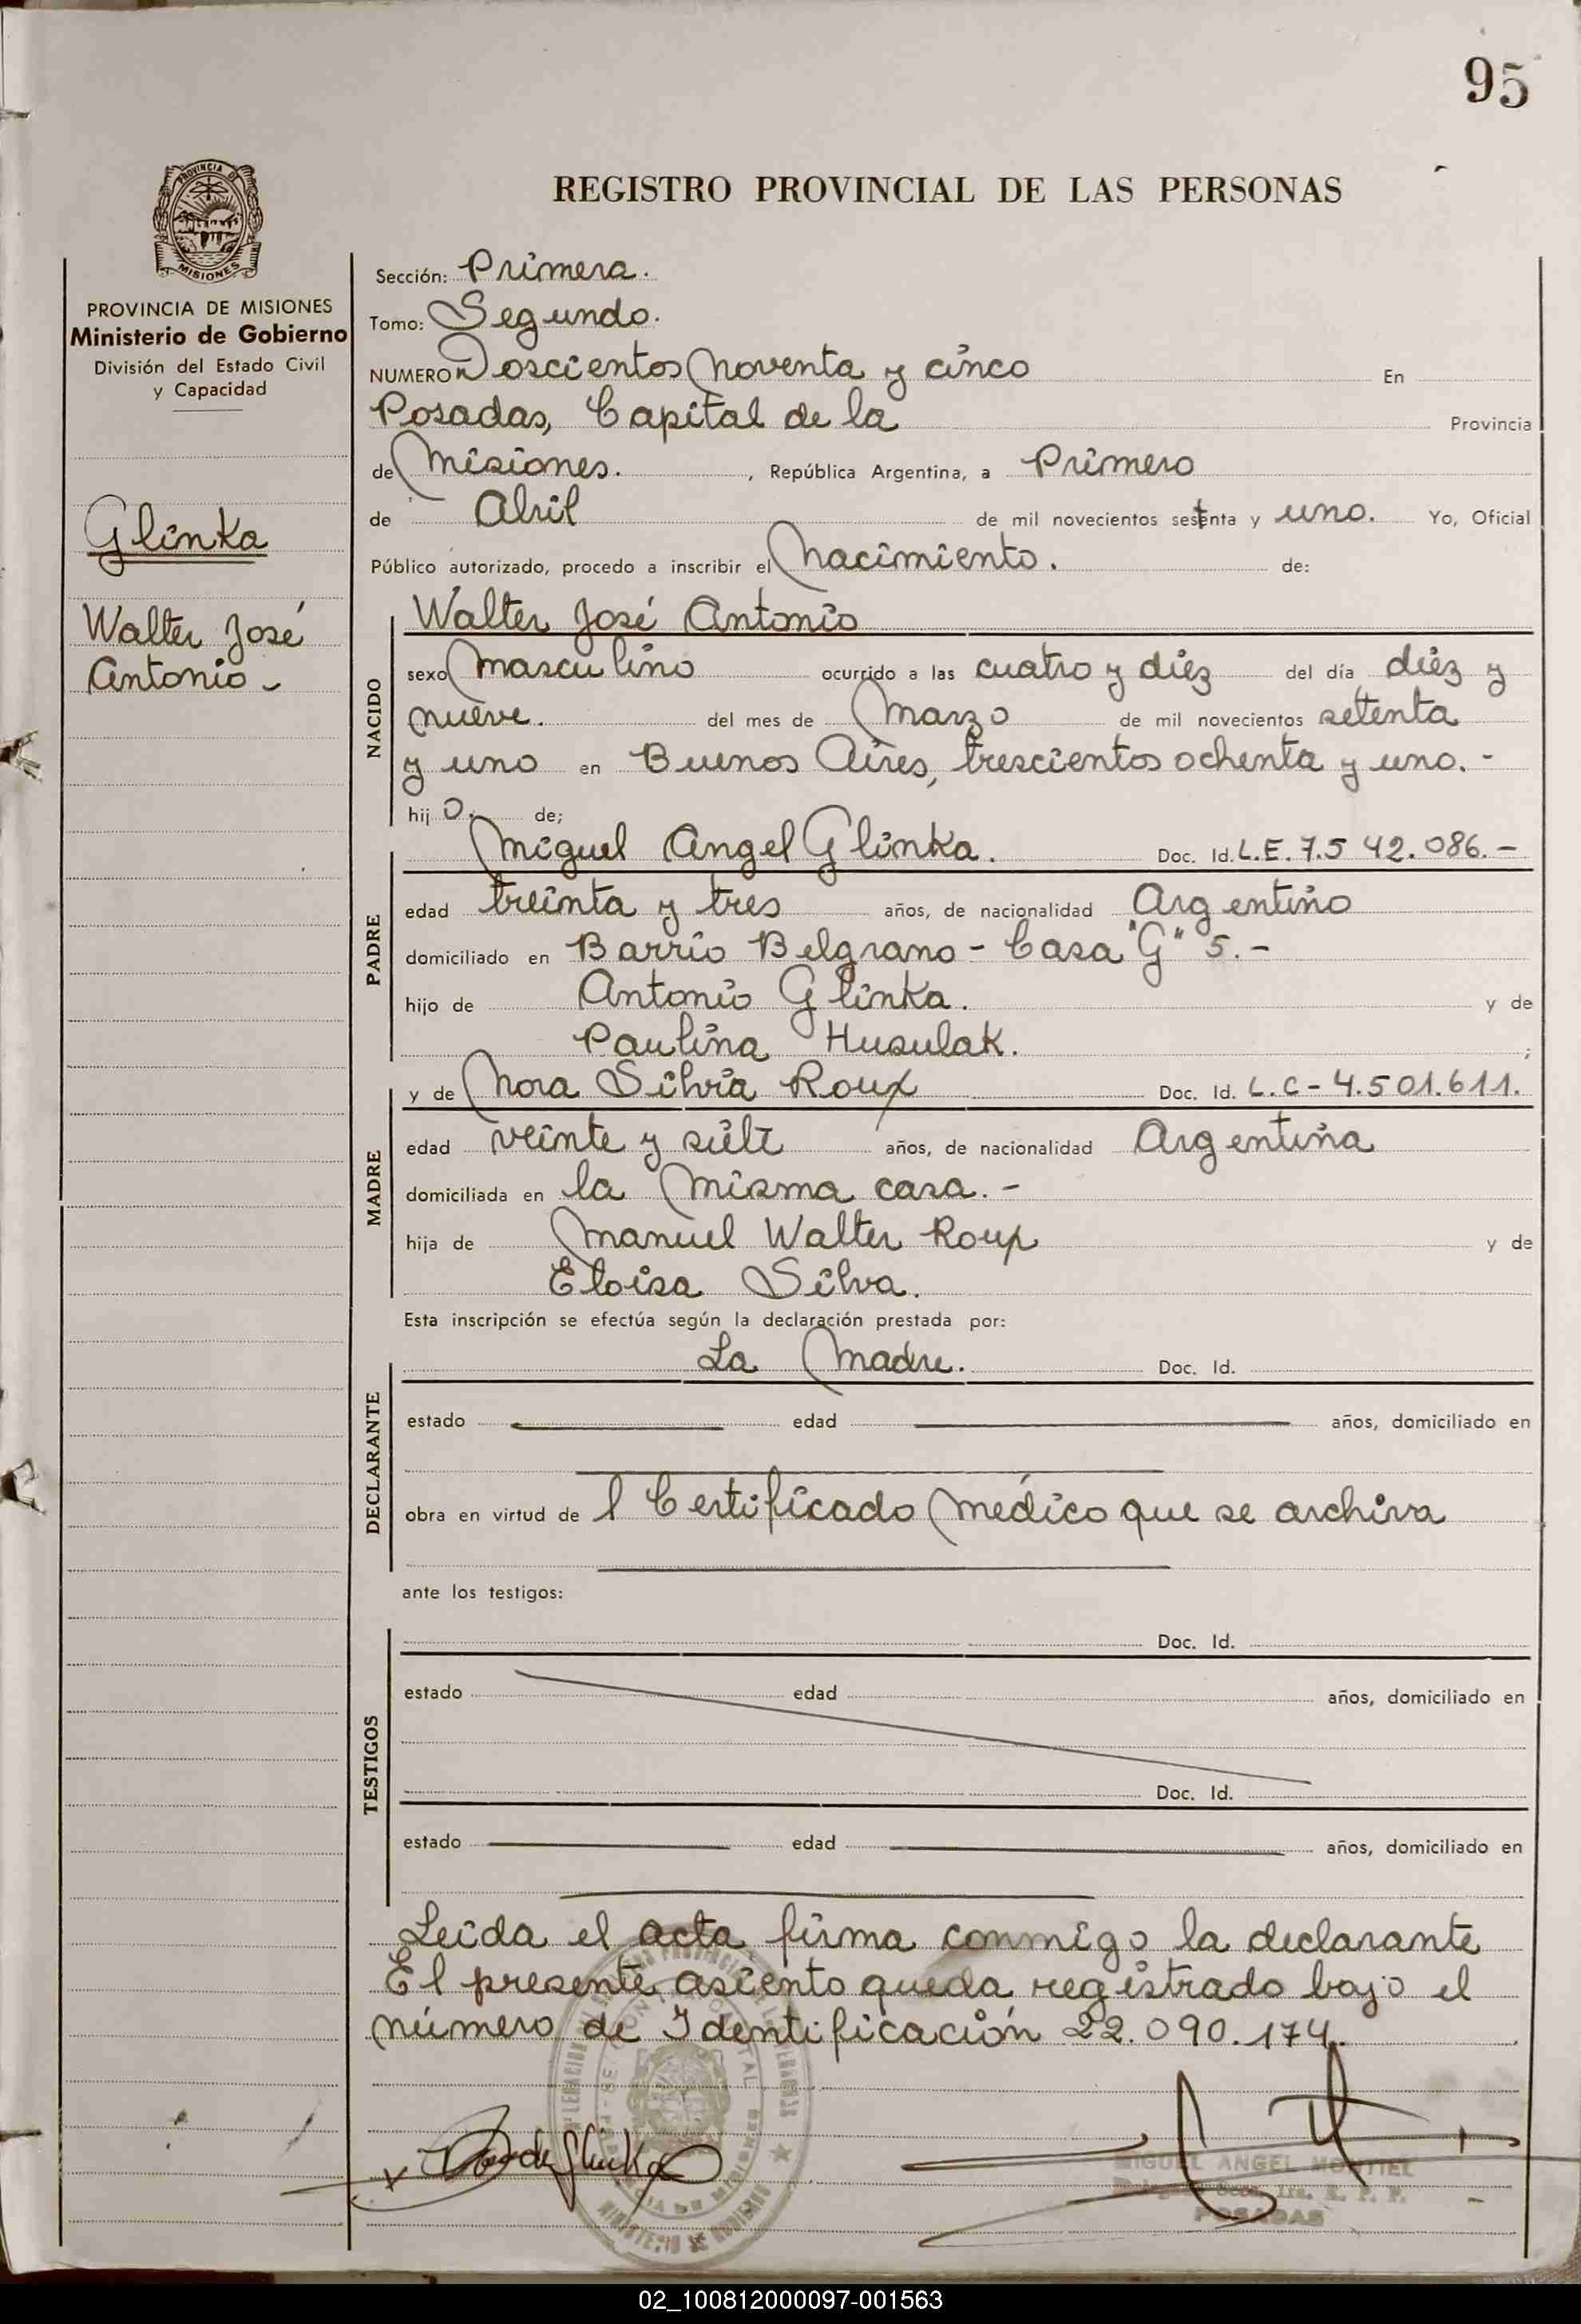 95
REGISTRO PROVINCIAL DE LAS PERSONAS
PROVINCIA DE
MISIONES
PROVINCIA DE MISIONES
Ministerio de Gobierno
División del Estado Civil
y Capacidad
Glinka
Walter José
Antonio-
Sección: Primera.
Tomo: Segundo.
NUMERO Doscientos Noventa y cinco En
Posadas, Capital de la Provincia
de Misiones. , República Argentina, a Primero
de Abril de mil novecientos setenta y uno. Yo, Oficial
Público autorizado, procedo a inscribir el Nacimiento. de:
NACIDO
Walter José Antonio
sexo Masculino ocurrido a las cuatro y diez del día diez y
nueve. del mes de Marzo de mil novecientos setenta
y uno en Buenos Aires, trescientos ochenta y uno.-
hijo. de;
PADRE
Miguel Angel Glinka. Doc. Id. L.E. 7.542.086.-
edad treinta y tres años, de nacionalidad Argentino
domiciliado en Barrio Belgrano - Casa "G" 5.-
hijo de Antonio Glinka. y de
Paulina Husulak. ;
MADRE
y de Nora Silvia Roux Doc. Id. L.C-4.501.611.
edad veinte y siete años, de nacionalidad Argentina
domiciliada en la Misma casa.-
hija de Manuel Walter Roux y de
Eloisa Silva.
Esta inscripción se efectúa según la declaración prestada por:
DECLARANTE
La Madre. Doc. Id.
estado edad años, domiciliado en
obra en virtud de l Certificado Médico que se archiva
ante los testigos:
TESTIGOS
Doc. Id.
estado edad años, domiciliado en
Doc. Id.
estado edad años, domiciliado en
Leida el acta firma conmigo la declarante
El presente asiento queda registrado bajo el
número de Identificación 22.090.174.
MIGUEL ANGEL MONTIEL
POSADAS
02_100812000097-001563